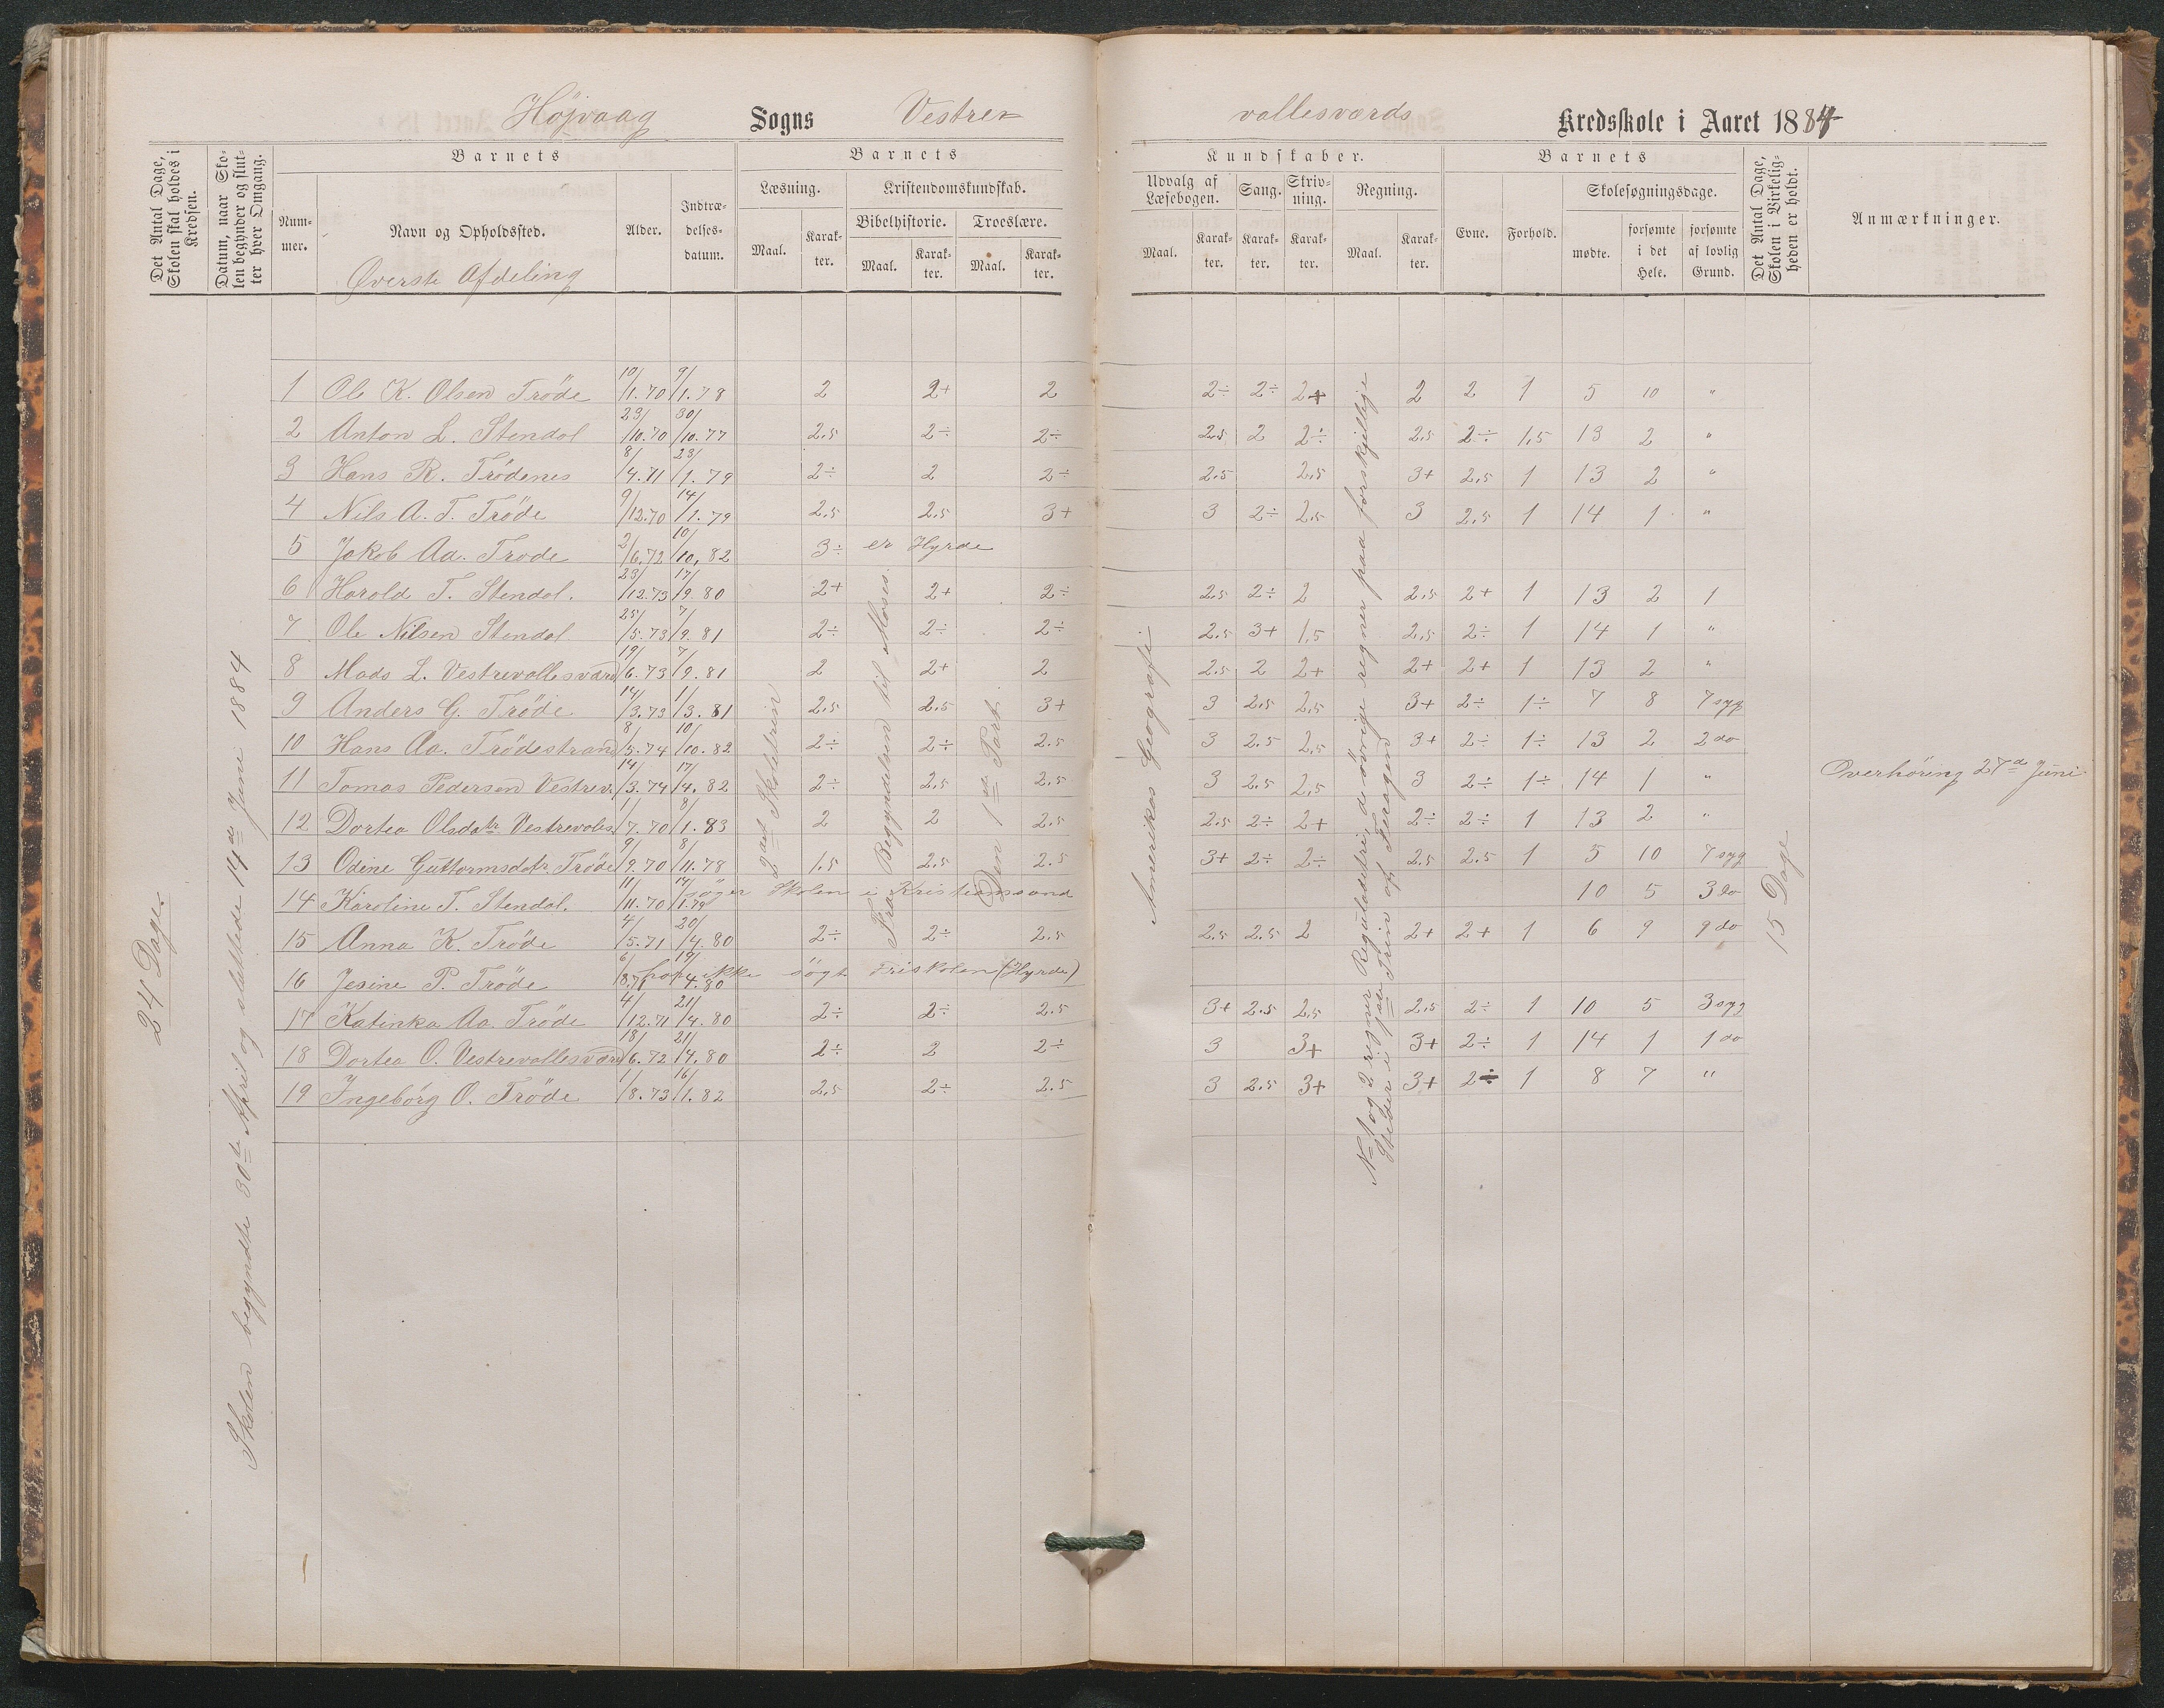 Højvaag Sogns Vestre vallesværds Kredsskole i Aaret 1884
Det Antal Dage, Skolen skal holdes i Kredsen.
Datum, naar Skolen begynder og slutter hver Omgang.
Barnets
Nummer.
Navn og Opholdssted.
Øverste Afdeling
Alder.
Indtrædelsesdatum.
Barnets
Læsning.
Maal.
Karakter.
Kristendomskundskab.
Bibelhistorie.
Maal.
Karakter.
Troeslære.
Maal.
Karakter.
Kundskaber.
Udvalg af Læsebogen.
Maal.
Karakter.
Sang.
Karakter.
Skrivning.
Karakter.
Regning.
Maal.
Karakter.
Barnets
Evne.
Forhold.
Skolesøgningsdage.
mødte.
forsømte i det Hele.
forsømte af lovlig Grund.
Det Antal Dage, Skolen i Virkeligheden er holdt.
Anmærkninger.
24 Dage.
Skolen begyndte 30te April og sluttede 14de Juni 1884
1 Ole K. Olsen Trøde 10/1.70 9/1.78 2 2+ 2 2÷ 2÷ 2+ 2 2 1 5 10 "
2 Anton L. Stendal 23/10.70 30/10.77 2.5 2÷ 2÷ 2.5 2 2÷ 2.5 2÷ 1,5 13 2 "
3 Hans R. Trødenes 8/4.71 23/1.79 2÷ 2 2÷ 2.5 2,5 3+ 2,5 1 13 2 "
4 Nils A. T. Trøde 9/12.70 14/1.79 2.5 2.5 3+ 3 2÷ 2,5 3 2,5 1 14 1 "
5 Jakob Aa. Trøde 2/6.72 10/10.82 3÷ er Hyrde
6 Harold T. Stendal. 23/12.73 17/9.80 2+ 2+ 2÷ 2.5 2÷ 2 2,5 2+ 1 13 2 1
7 Ole Nilsen Stendal 25/5.73 7/9.81 2÷ 2÷ 2÷ 2.5 3+ 1,5 2,5 2÷ 1 14 1 "
8 Mads L. Vestrevallesværd 19/6.73 7/9.81 2 2+ 2 2.5 2 2+ 2+ 2+ 1 13 2 "
9 Anders G. Trøde 14/3.73 1/3.81 2.5 2.5 3+ 3 2.5 2,5 3+ 2÷ 1÷ 7 8 7 syg
10 Hans Aa. Trødestrand 8/5.74 10/10.82 2÷ 2÷ 2.5 3 2.5 2,5 3+ 2÷ 1÷ 13 2 2 do
11 Tomas Pedersen Vestrev. 14/3.74 17/4.82 2÷ 2,5 2,5 3 2.5 2,5 3 2÷ 1÷ 14 1 "
12 Dortea Olsdatr Vestrevalles. 1/7.70 8/1.83 2 2 2.5 2.5 2÷ 2+ 2÷ 2÷ 1 13 2 "
13 Odine Guttormsdatr. Trøde 9/9.70 8/11.78 1.5 2.5 2.5 3+ 2÷ 2÷ 2.5 2.5 1 5 10 7 syg
14 Karoline T. Stendal. 11/11.70 14/1.79 søger Skolen i Kristiansand 10 5 3 do
15 Anna K. Trøde 4/5.71 20/4.80 2÷ 2÷ 2.5 2.5 2.5 2 2+ 2+ 1 6 9 9 do
16 Jesine P. Trøde 6/8.71 19/4.80 har ikke søgt Friskolen (Hyrde)
17 Katinka Aa. Trøde 4/12.71 21/4.80 2÷ 2÷ 2.5 3+ 2.5 2,5 2,5 2÷ 1 10 5 3 syg
18 Dortea O. Vestrevallesværd 18/6.72 21/4.80 2÷ 2 2÷ 3 3+ 3+ 2÷ 1 14 1 1 do
19 Ingeborg O. Trøde 1/8.73 16/1.82 2.5 2÷ 2.5 3 2.5 3+ 3+ 2÷ 1 8 7 "
2det Skoletrin
Fra Begyndelsen til Moses.
Den 1ste Part.
Amerikas Geografi
No 1 og 2 regner Reguladetri, de øvrige regner paa forskjellige
Steder i 1ste Trin af
15 Dage
Overhøring 27de Juni